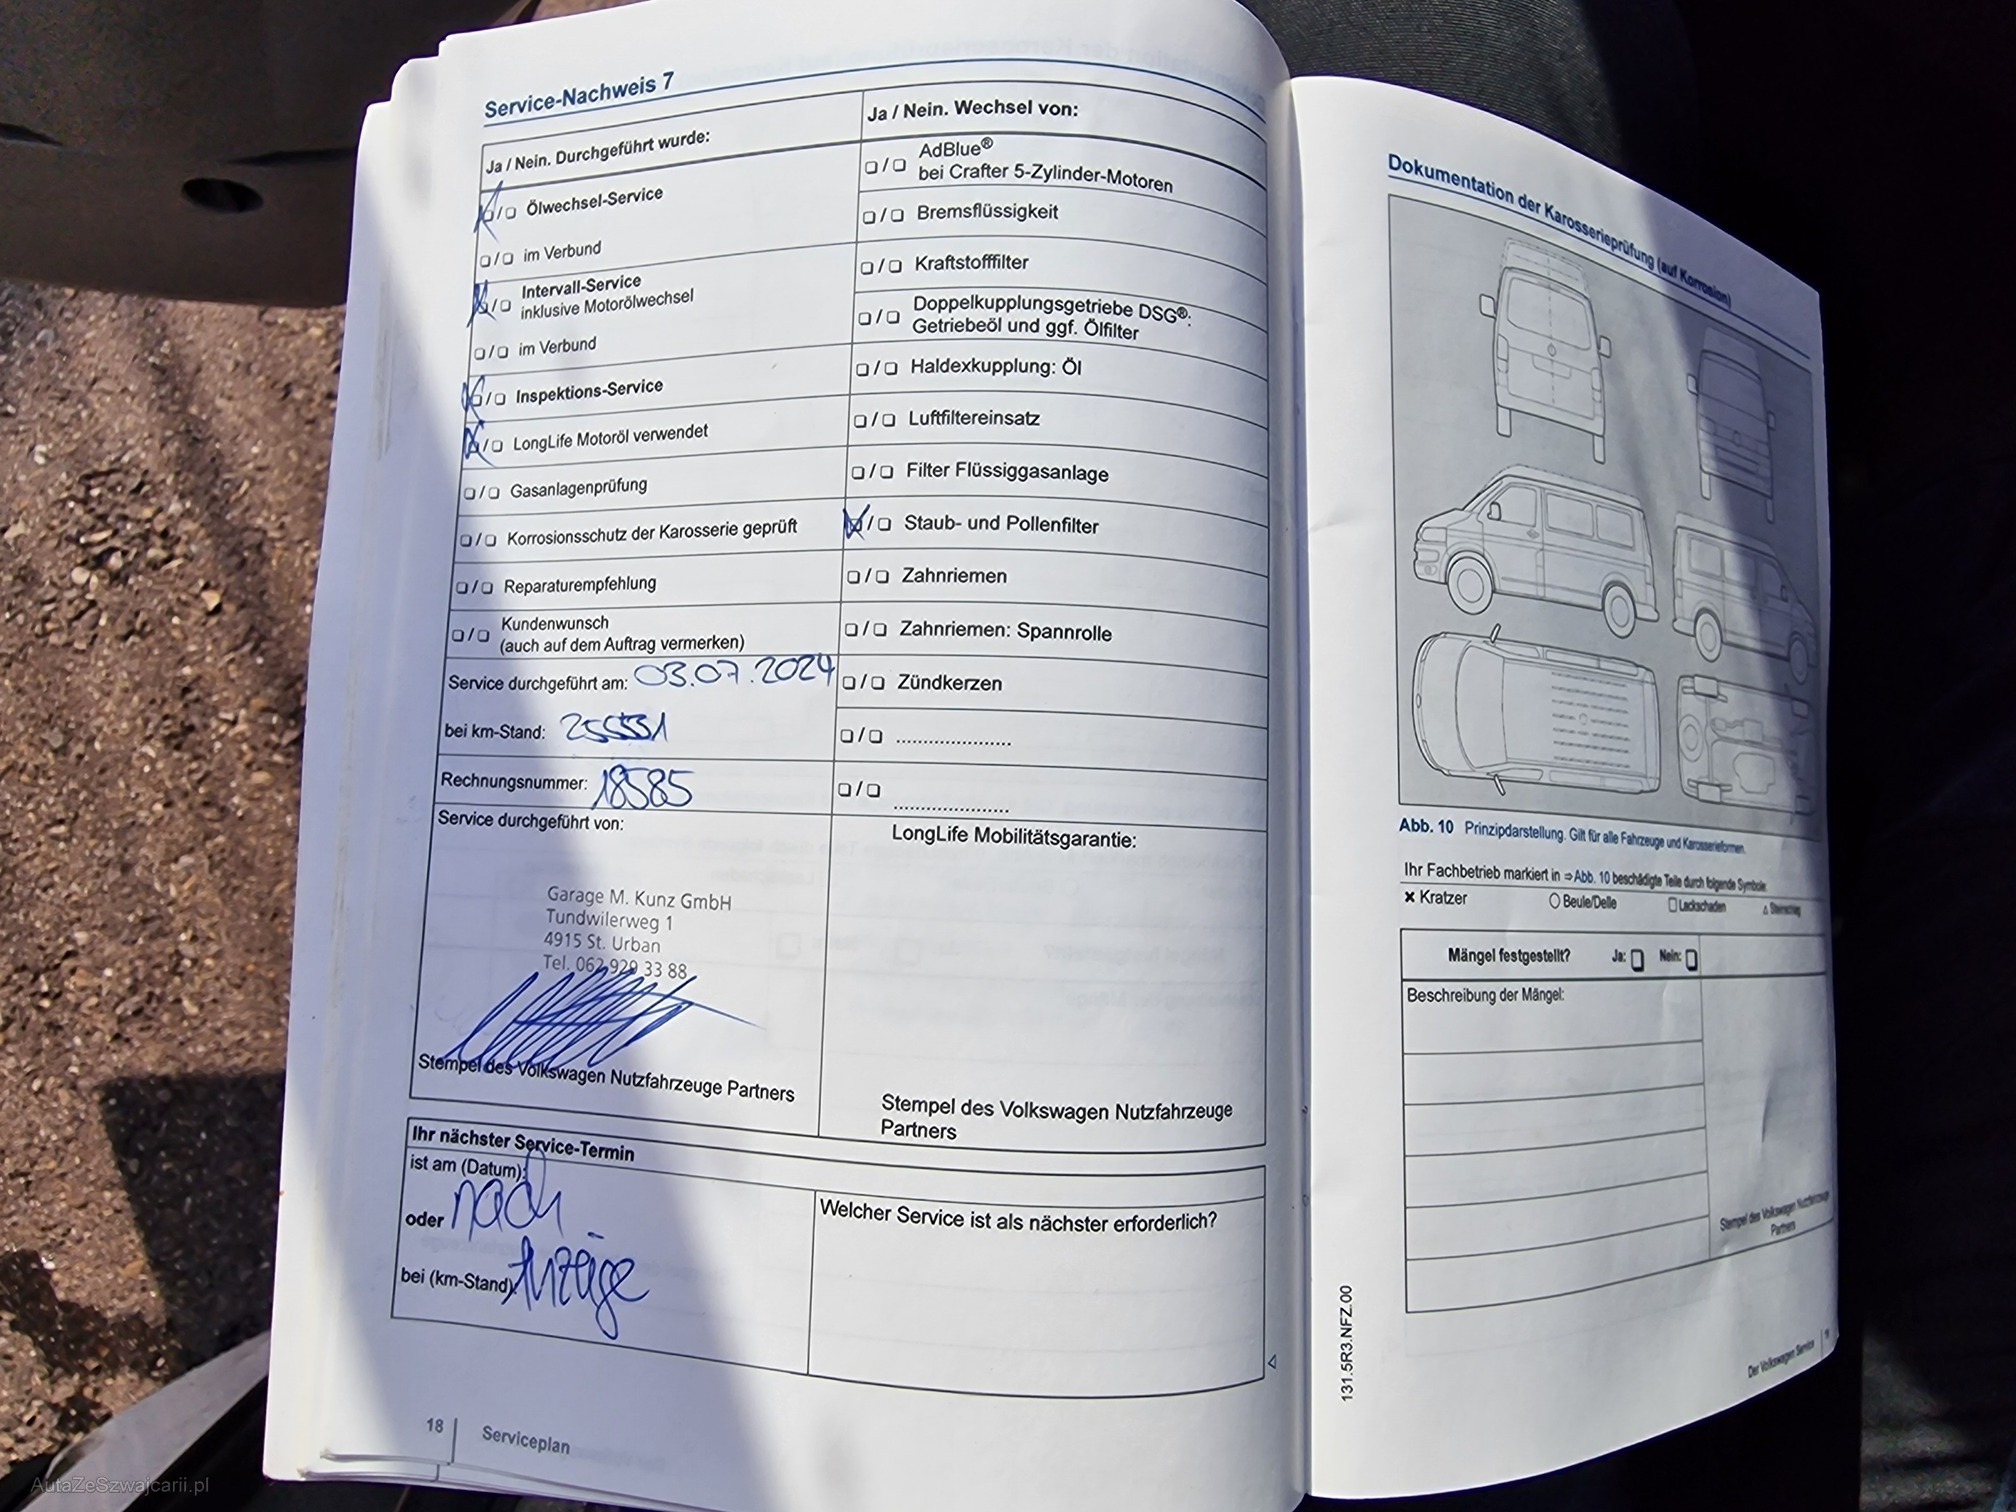 Service-Nachweis 7
Ja / Nein. Durchgeführt wurde:
/ Ölwechsel-Service
/ im Verbund
/ Intervall-Service
inklusive Motorölwechsel
/ im Verbund
/ Inspektions-Service
/ LongLife Motoröl verwendet
/ Gasanlagenprüfung
/ Korrosionsschutz der Karosserie geprüft
/ Reparaturempfehlung
/ Kundenwunsch
(auch auf dem Auftrag vermerken)
Service durchgeführt am: 03.07.2024
bei km-Stand: 255551
Rechnungsnummer: 18585
Service durchgeführt von:
Garage M. Kunz GmbH
Tundwilerweg 1
4915 St. Urban
Tel. 062 929 33 88
Stempel des Volkswagen Nutzfahrzeuge Partners
Ja / Nein. Wechsel von:
/ AdBlue®
bei Crafter 5-Zylinder-Motoren
/ Bremsflüssigkeit
/ Kraftstofffilter
/ Doppelkupplungsgetriebe DSG®:
Getriebeöl und ggf. Ölfilter
/ Haldexkupplung: Öl
/ Luftfiltereinsatz
/ Filter Flüssiggasanlage
/ Staub- und Pollenfilter
/ Zahnriemen
/ Zahnriemen: Spannrolle
/ Zündkerzen
/ .....................
/ .....................
LongLife Mobilitätsgarantie:
Stempel des Volkswagen Nutzfahrzeuge
Partners
Ihr nächster Service-Termin
ist am (Datum):
oder nach
bei (km-Stand): Anzeige
Welcher Service ist als nächster erforderlich?
18 | Serviceplan
Dokumentation der Karosserieprüfung (auf Korrosion)
Abb. 10 Prinzipdarstellung. Gilt für alle Fahrzeuge und Karosserieformen.
Ihr Fachbetrieb markiert in ⇒ Abb. 10 beschädigte Teile durch folgende Symbole:
× Kratzer ○ Beule/Delle □ Lackschaden △ Steinschlag
Mängel festgestellt? Ja: Nein:
Beschreibung der Mängel:
Stempel des Volkswagen Nutzfahrzeuge
Partners
131.5R3.NFZ.00
Der Volkswagen Service | 19
AutaZeSzwajcarii.pl